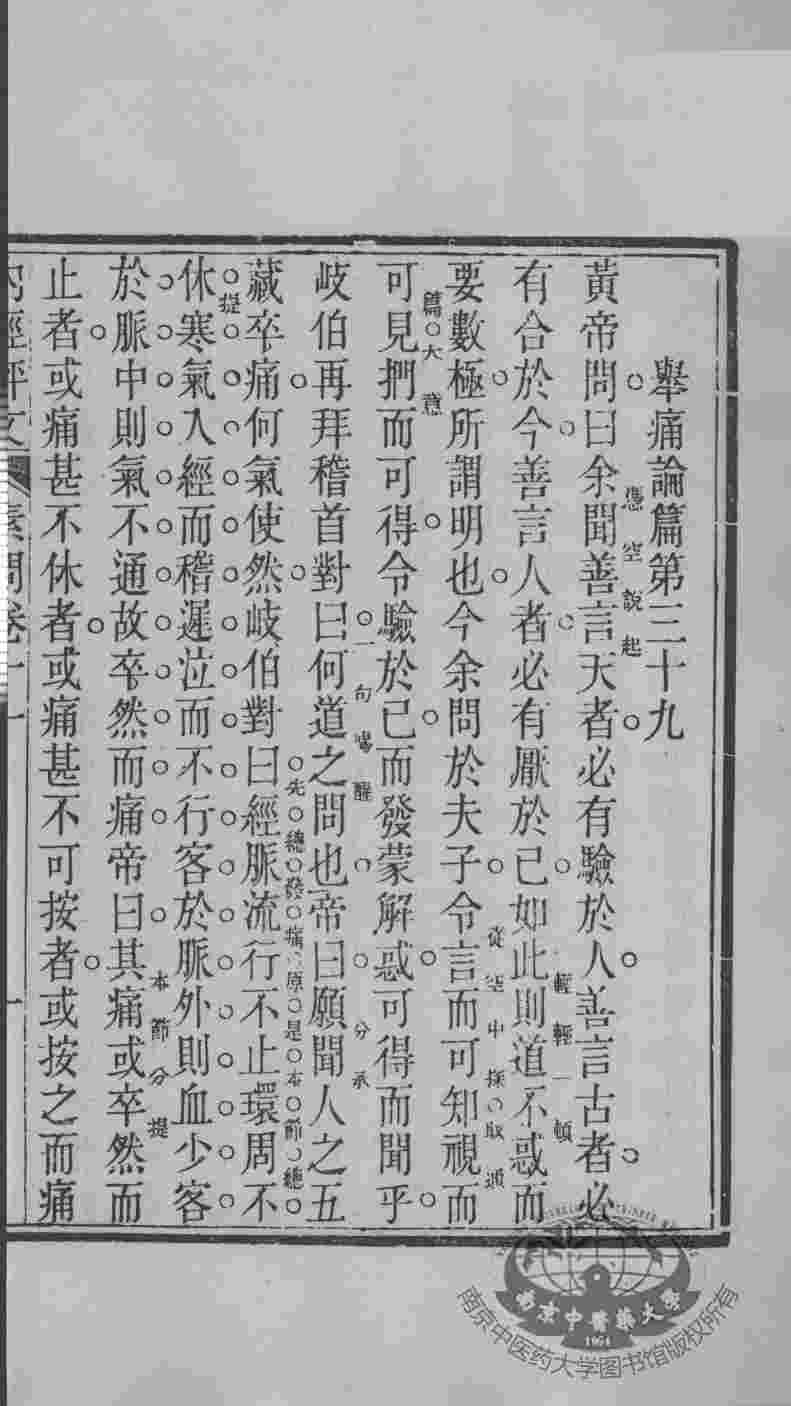 舉痛論篇第三十九
黃帝問曰余聞善言天者必有驗於人善言古者必
憑空說起
有合於今善言人者必有厭於己如此則道不惑而
輕輕一頓
要數極所謂明也今余問於夫子令言而可知視而
從空中採取通
篇大意
可見捫而可得令驗於己而發蒙解惑可得而聞乎
岐伯再拜稽首對曰何道之問也帝曰願聞人之五
一句喝醒
分承
藏卒痛何氣使然岐伯對曰經脈流行不止環周不
先總發痛原是本節總
提
休寒氣入經而稽遲泣而不行客於脈外則血少客
於脈中則氣不通故卒然而痛帝曰其痛或卒然而
本節分提
止者或痛甚不休者或痛甚不可按者或按之而痛
內經評文
素問卷十一
一
南京中醫藥大學
1954
南京中医药大学图书馆版权所有